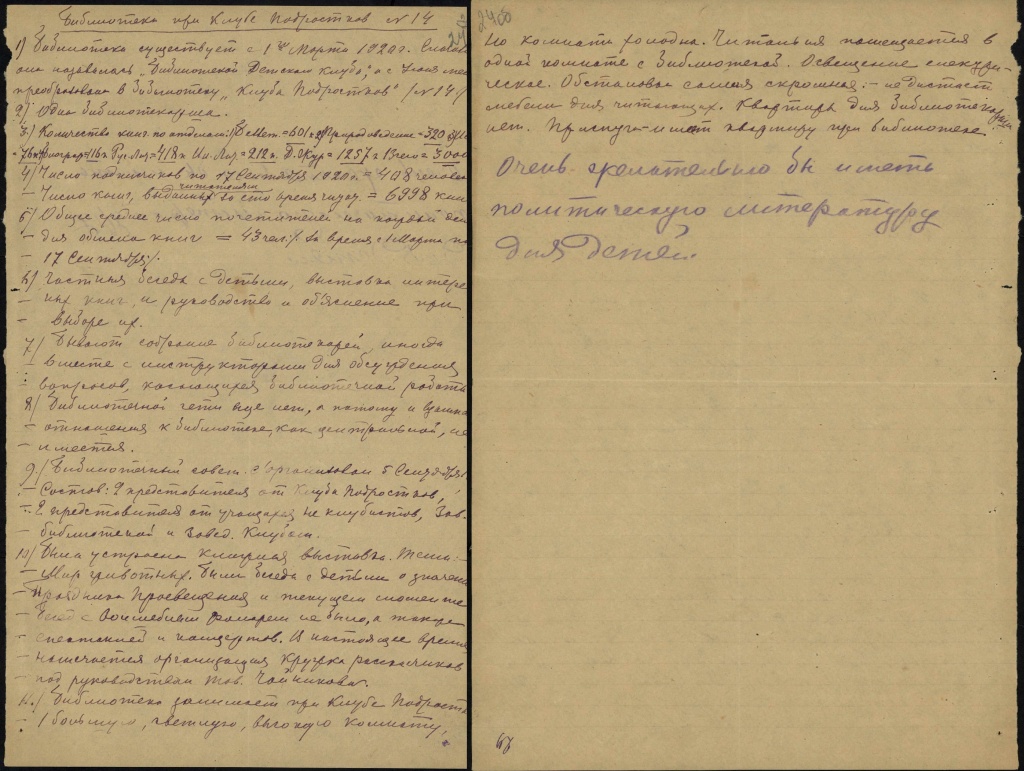 Библиотека при Клубе Подростков №14
1) Библиотека существует с 1го Марта 1920 г. Сначала
она называлась „Библиотекой Детского Клуба", а с Июля мес
преобразована в библиотеку „Клуба Подростков" /№14/
2) Одна библиотекарша.
3) Количество книг по отделам: = 601 к Природоведение = 320
76 к Географ = 116 к Рус. Лит = 418 к Ин. Лит. = 212 к. = 1257 к Всего = 3000
4) Число подписчиков по 17 Сентября 1920 г. = 408 человек
– Число книг, выданных читателям за это время = 6998 книг
5) Общее среднее число посетителей на каждый день
для обмена книг = 43 чел. /за время с 1 Марта по
– 17 Сентября/.
6) Частныя беседы с детьми, выставка интере
– ных книг, и руководство и объяснение при
– выборе их.
7) Бывают собрание библиотекарей, иногда
– вместе с инструкторами для обсуждения
вопросов, касающихся библиотечной работы
8) Библиотечной сети еще нет, а потому и взаимо
– отношения к библиотеке, как центральной, не
– имеется.
9) Библиотечный совет с'организован 5 Сентября.
– Состав: 2 представителя от Клуба Подростков,
– 2 представителя от учащихся не клубистов, Зав.
– библиотекой и Завед. Клубом.
10) Была устроена книжная выставка. Тема: –
– Мир животных. Были беседы с детьми о значени
– Праздника Просвещения и текущем моменте
– Бесед с Волшебным фонарем не было, а также
– спектаклей и концертов. В настоящее время
– намечается организация Кружка рассказчиков
– под руководством тов. Чайникова.
11) Библиотека занимает при Клубе Подростк
– 1 большую, светлую, высокую комнату,
но комната холодна. Читальня помещается в
одной комнате с библиотекой. Освещение электри-
ческое. Обстановка самая скромная: – не достает
мебели для читающих. Квартира для библиотекарши
нет. Прислуга имеет квартиру при библиотеке.
Очень желательно бы иметь
политическую литературу
для детей.